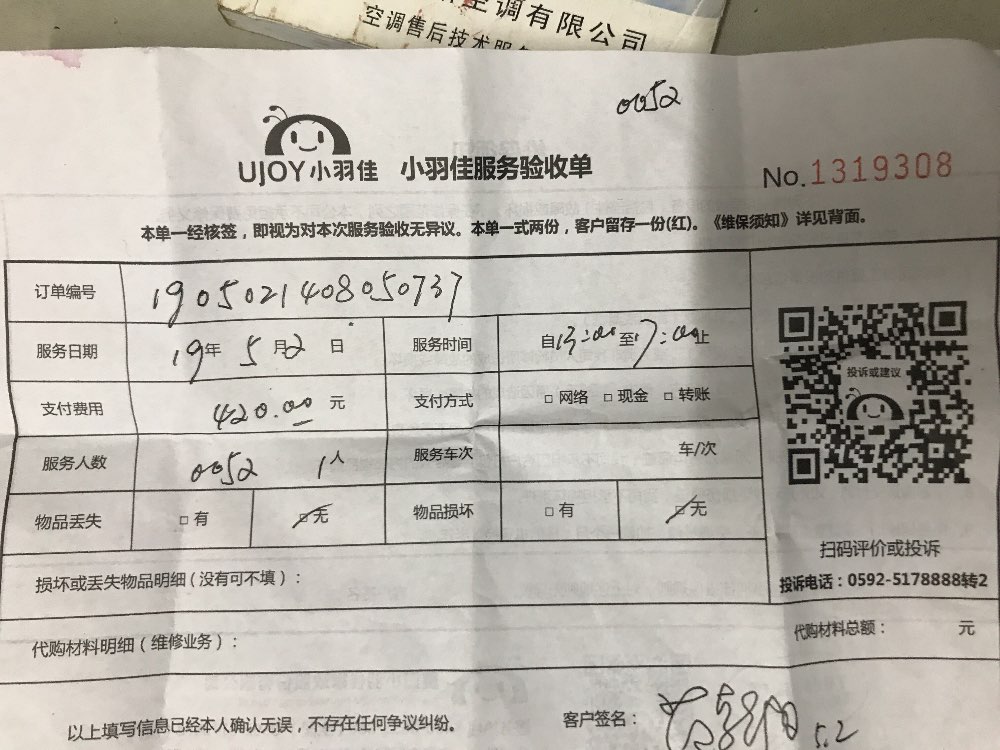 空调有限公司
空调售后技术服
0052
UJOY小羽佳 小羽佳服务验收单 No.1319308
本单一经核签，即视为对本次服务验收无异议。本单一式两份，客户留存一份(红)。《维保须知》详见背面。
订单编号 1905021408050737
服务日期 19年 5月2日 服务时间 自13:00至17:00止
支付费用 420.00 元 支付方式 □ 网络 □ 现金 □ 转账
投诉或建议
服务人数 0052 1人 服务车次 车/次
物品丢失 □ 有 □ 无 物品损坏 □ 有 □ 无
扫码评价或投诉
投诉电话：0592-5178888转2
损坏或丢失物品明细（没有可不填）：
代购材料明细（维修业务）： 代购材料总额： 元
以上填写信息已经本人确认无误，不存在任何争议纠纷。 客户签名： 5.2